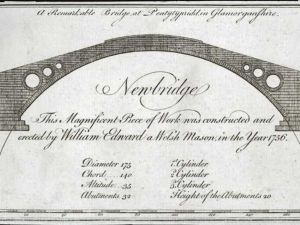 A Remarkable Bridge, at Pontytypridd, in Glamorganshire.
Newbridge
This Magnificent Piece of Work was constructed and
erected by William Edward a Welsh Mason, in the Year 1756.
Diameter 175 1 Cylinder
Chord 140 2 Cylinder
Altitude 35 3 Cylinder
Abutments 32 Height of the Abutments 20